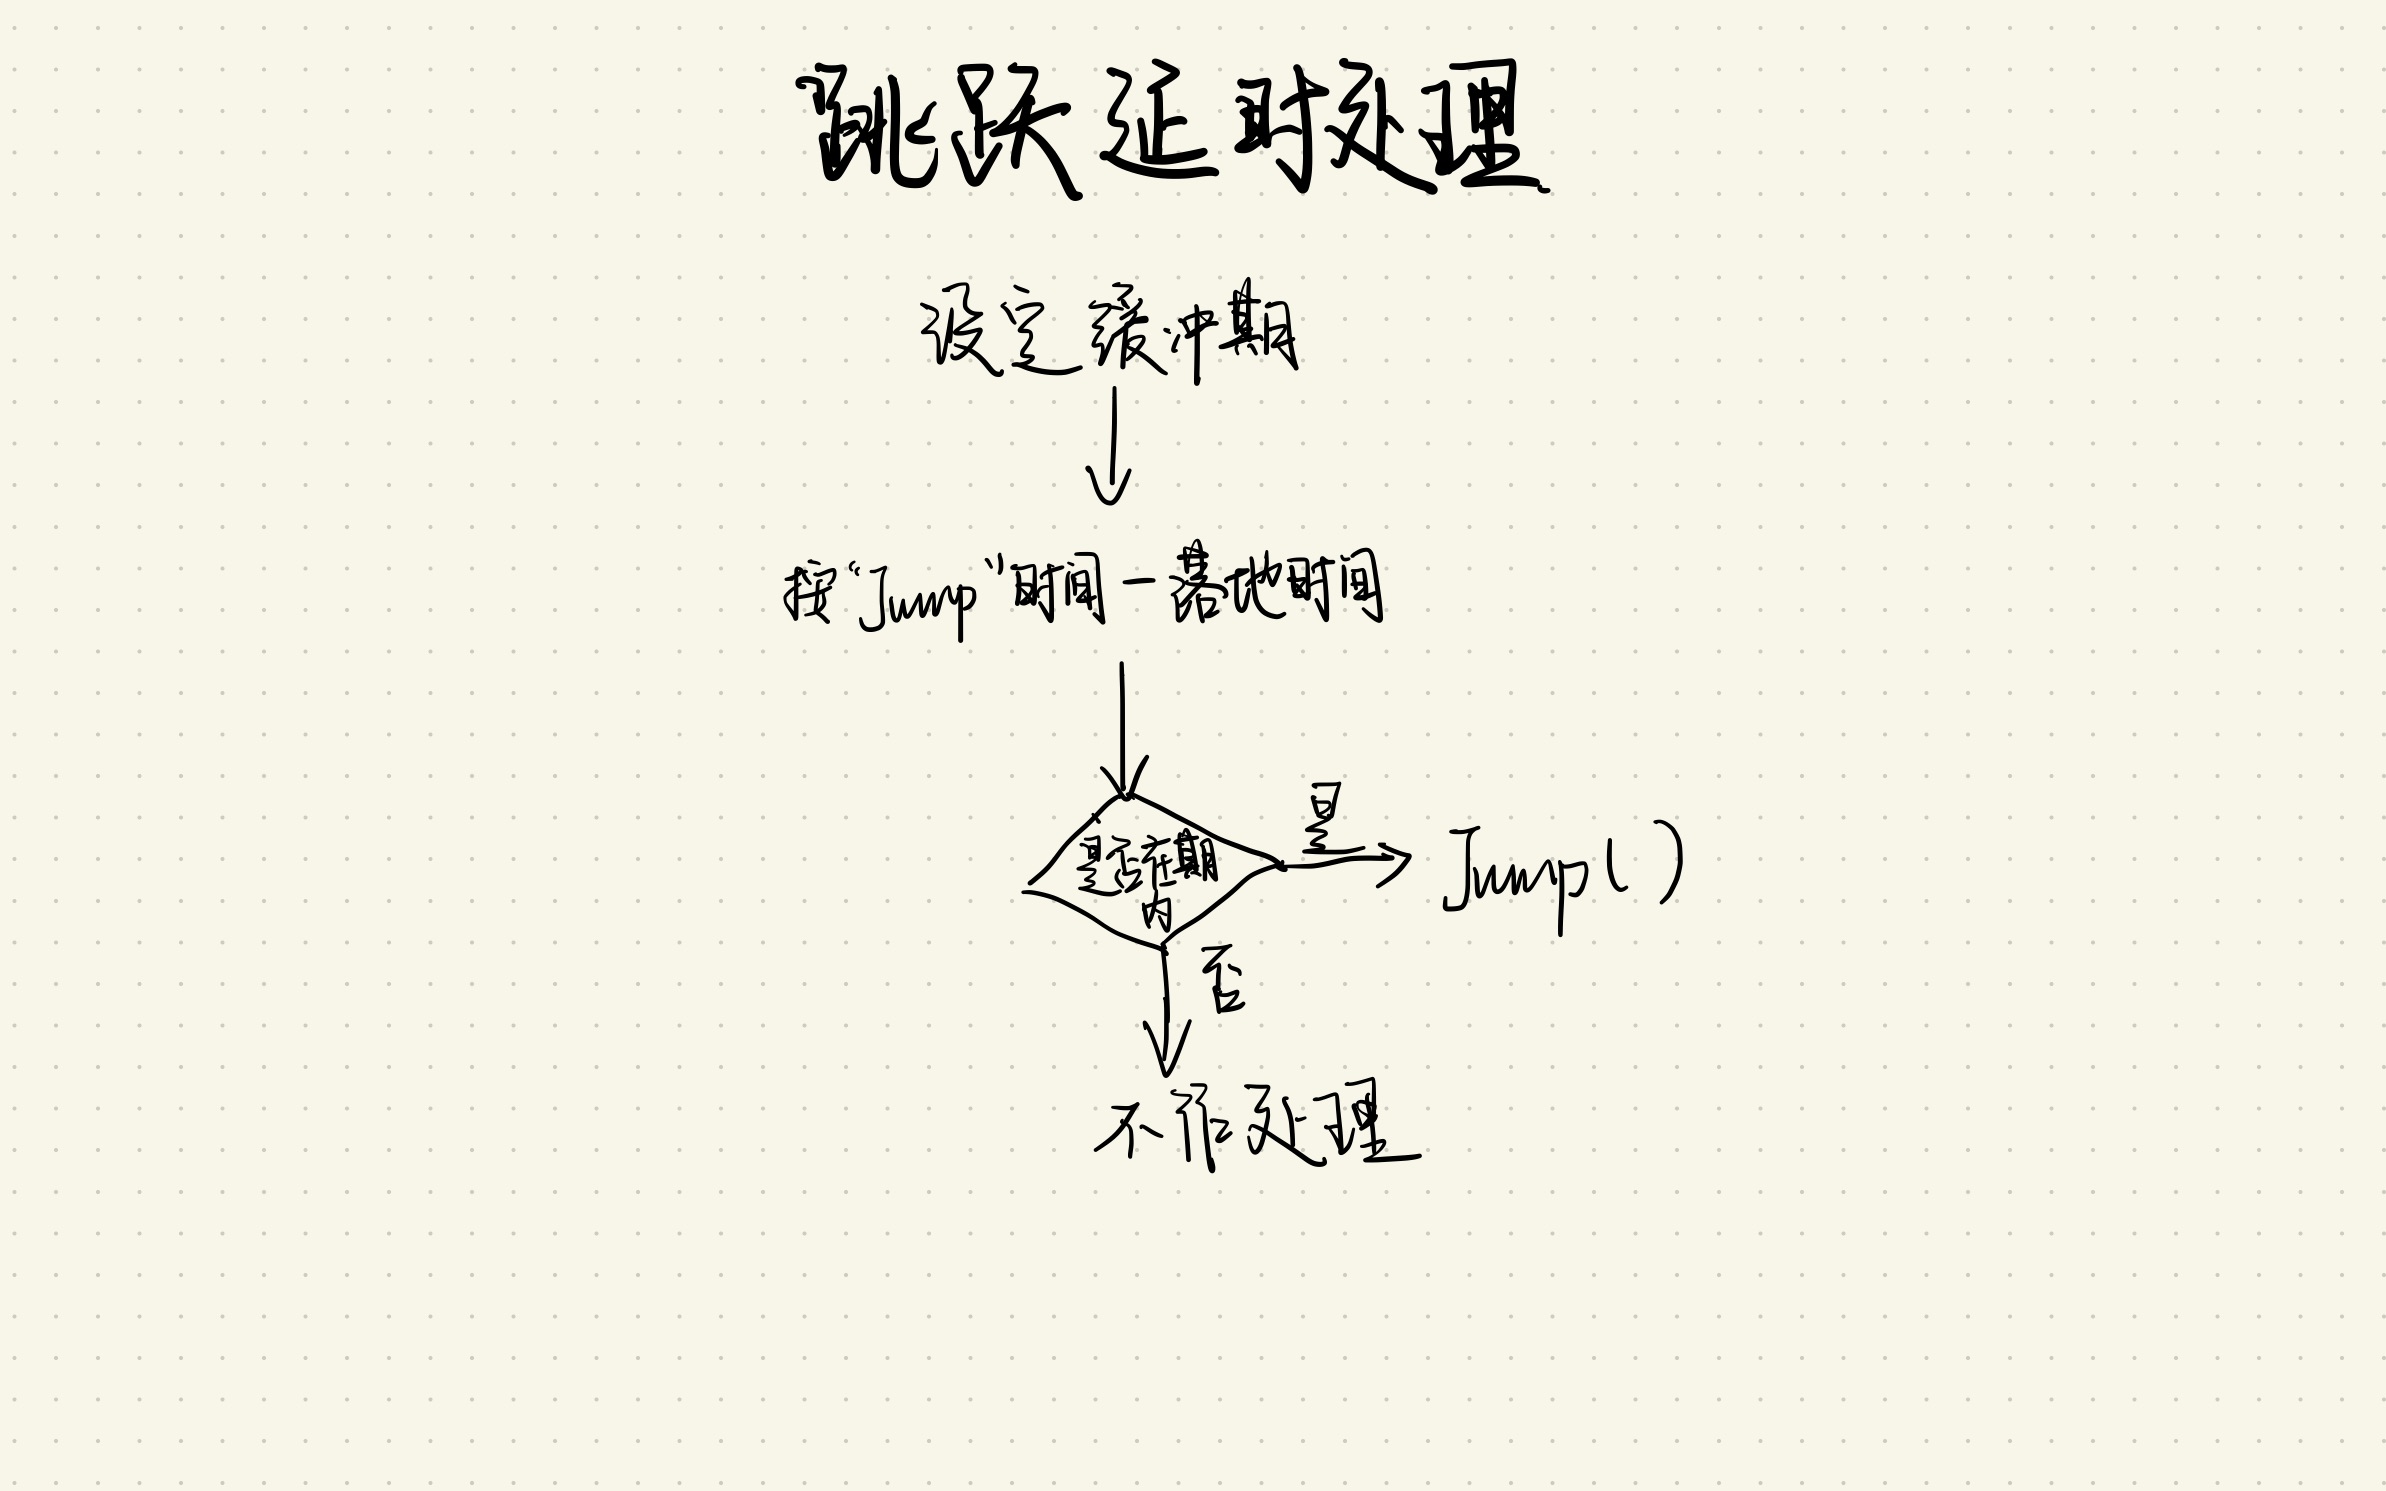 跳跃延时处理
设定缓冲期
按“Jump”时间-落地时间
是否在期
内
是
Jump()
否
不作处理